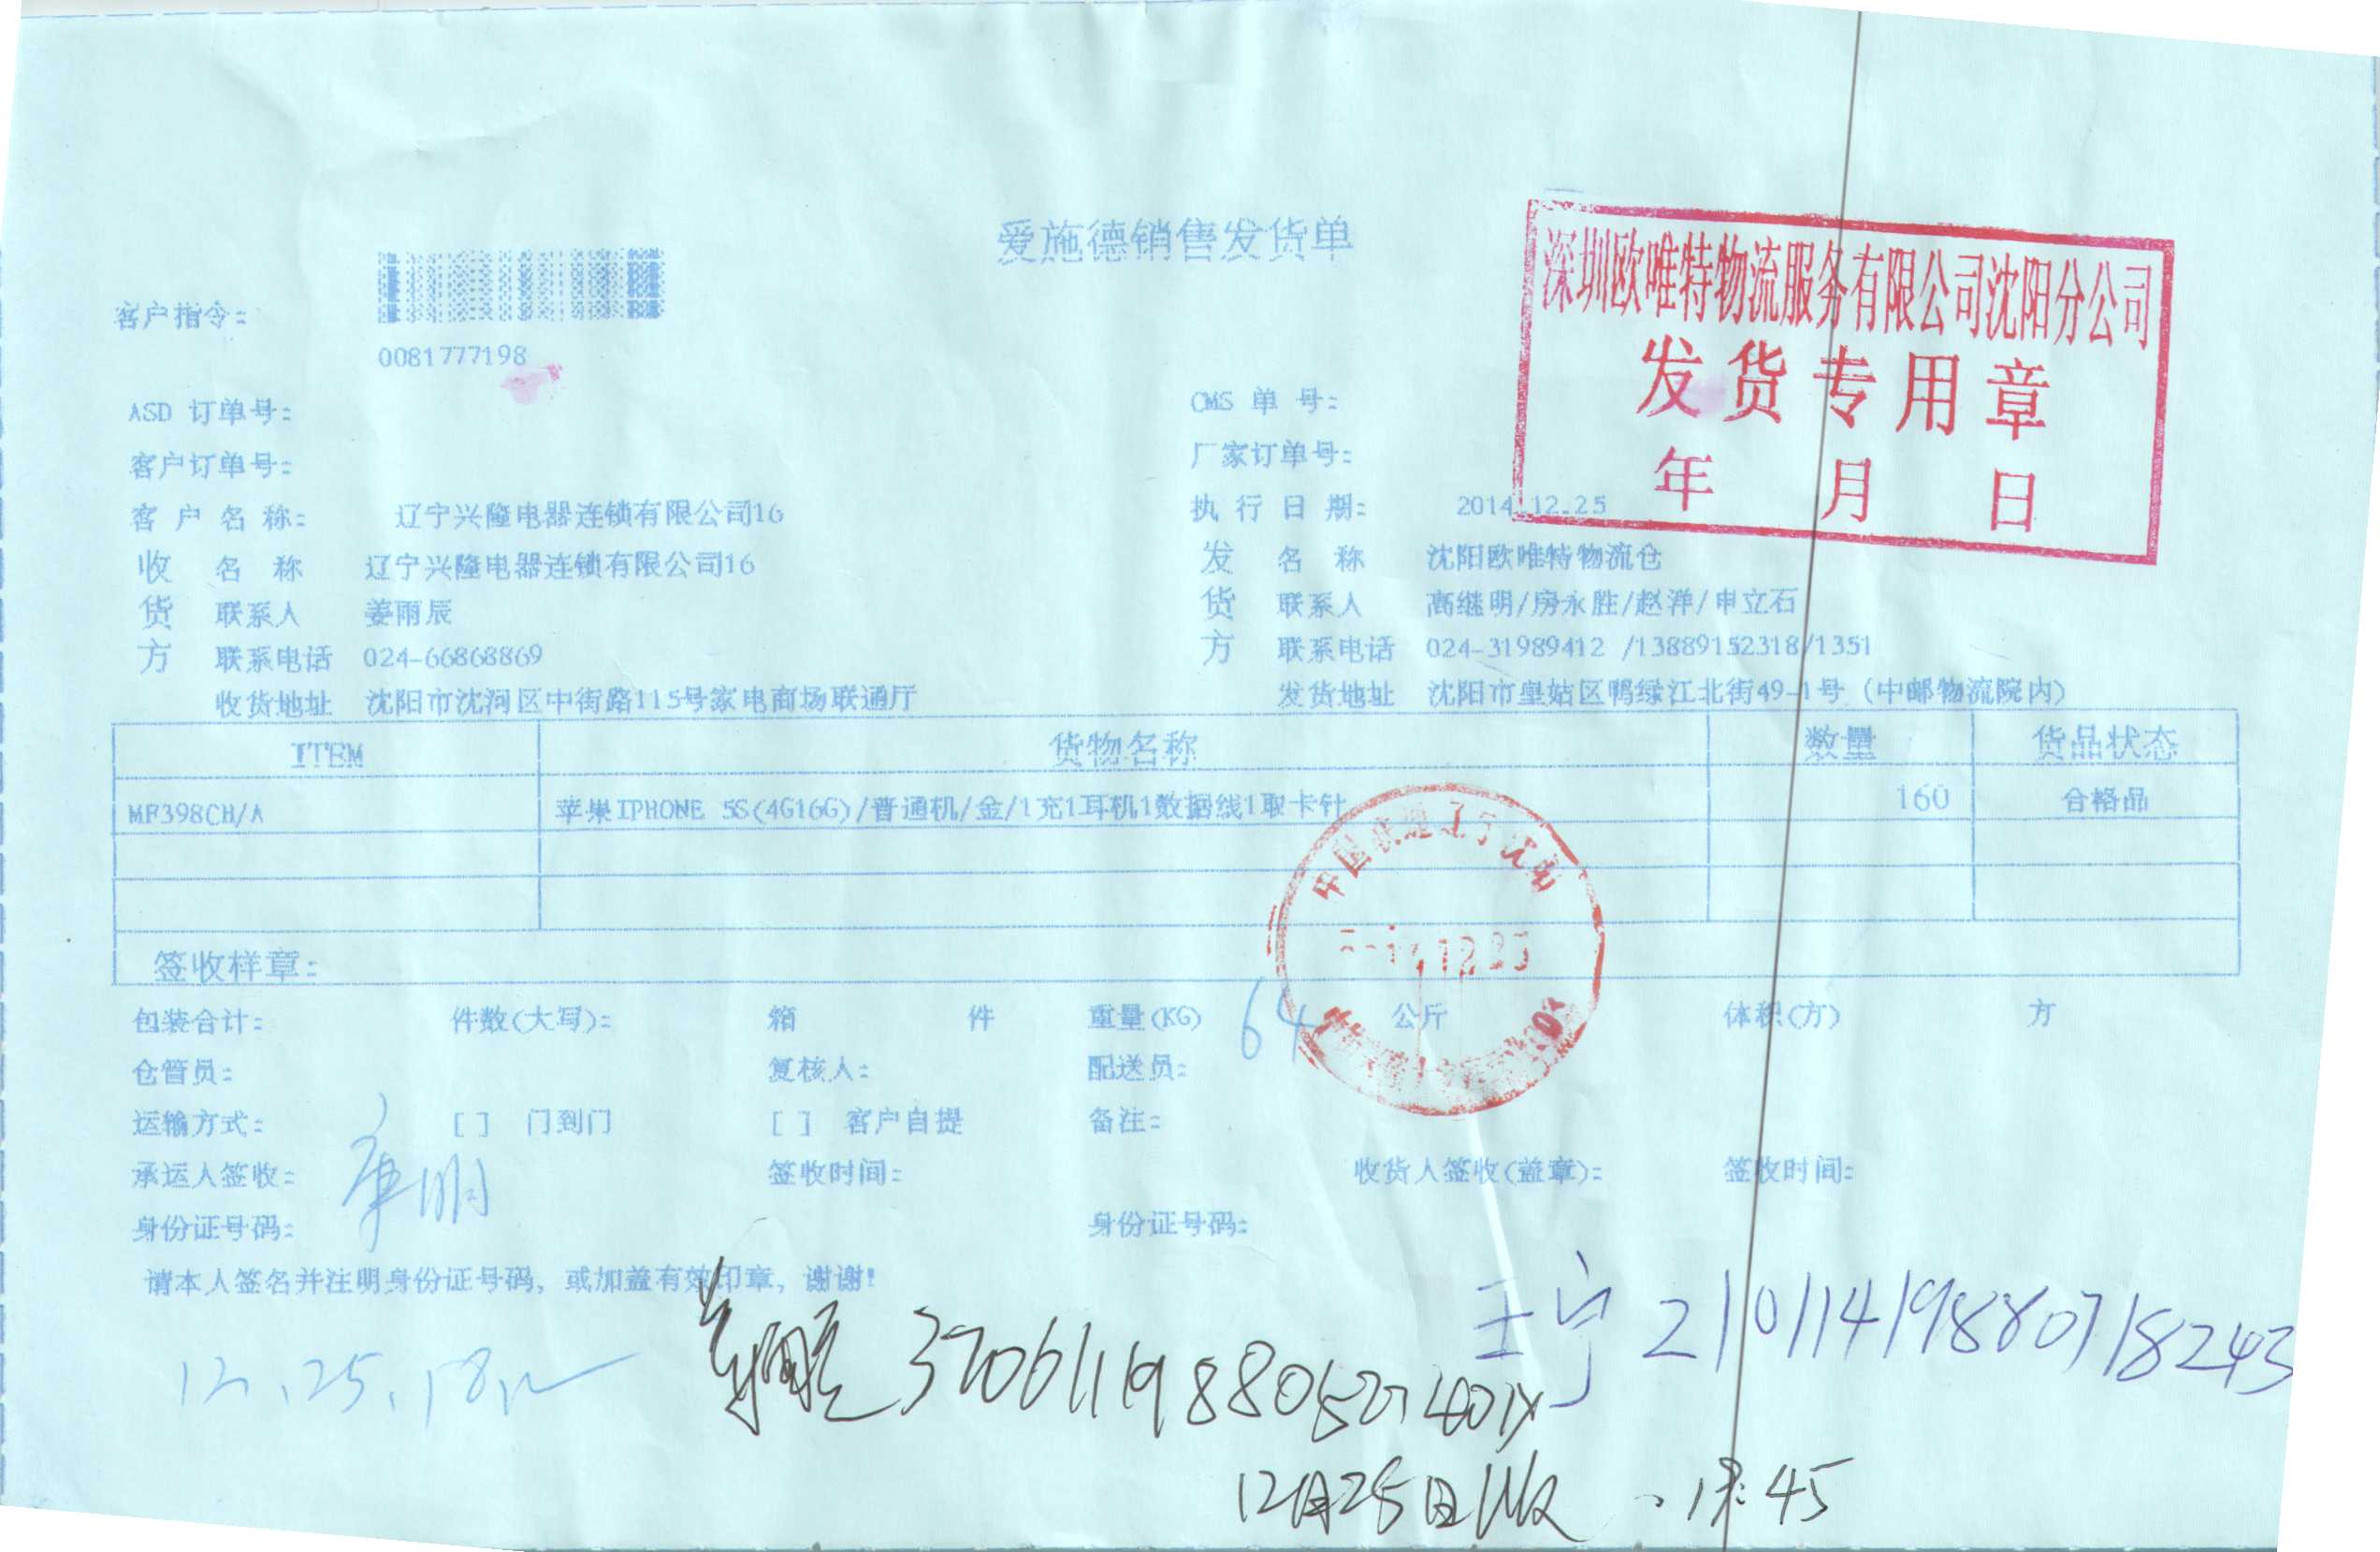 爱施德销售发货单
深圳欧唯特物流服务有限公司沈阳分公司
发货专用章
年 月 日
客户指令:
0081777198
ASD 订单号:
CMS 单 号:
客户订单号:
厂家订单号:
客 户 名 称: 辽宁兴隆电器连锁有限公司16
执 行 日 期: 2014.12.25
收 名 称 辽宁兴隆电器连锁有限公司16
发 名 称 沈阳欧唯特物流仓
货 联系人 姜雨辰
货 联系人 高继明/房永胜/赵洋/申立石
方 联系电话 024-66868869
方 联系电话 024-31989412 /13889152318/1351
收货地址 沈阳市沈河区中街路115号家电商场联通厅
发货地址 沈阳市皇姑区鸭绿江北街49-1号 (中邮物流院内)
ITEM 货物名称 数量 货品状态
MF398CH/A 苹果IPHONE 5S(4G16G)/普通机/金/1充1耳机1数据线1取卡针 160 合格品
中国联通辽宁沈阳
签收样章:
包装合计: 件数(大写): 箱 件 重量(KG) 64 公斤 体积(方) 方
仓管员: 复核人: 配送员:
运输方式: [ ] 门到门 [ ] 客户自提 备注:
承运人签收: 签收时间: 收货人签收(盖章): 签收时间:
身份证号码: 身份证号码:
请本人签名并注明身份证号码, 或加盖有效印章, 谢谢!
王宁 21011419880718243
12.25.18
12月25日收